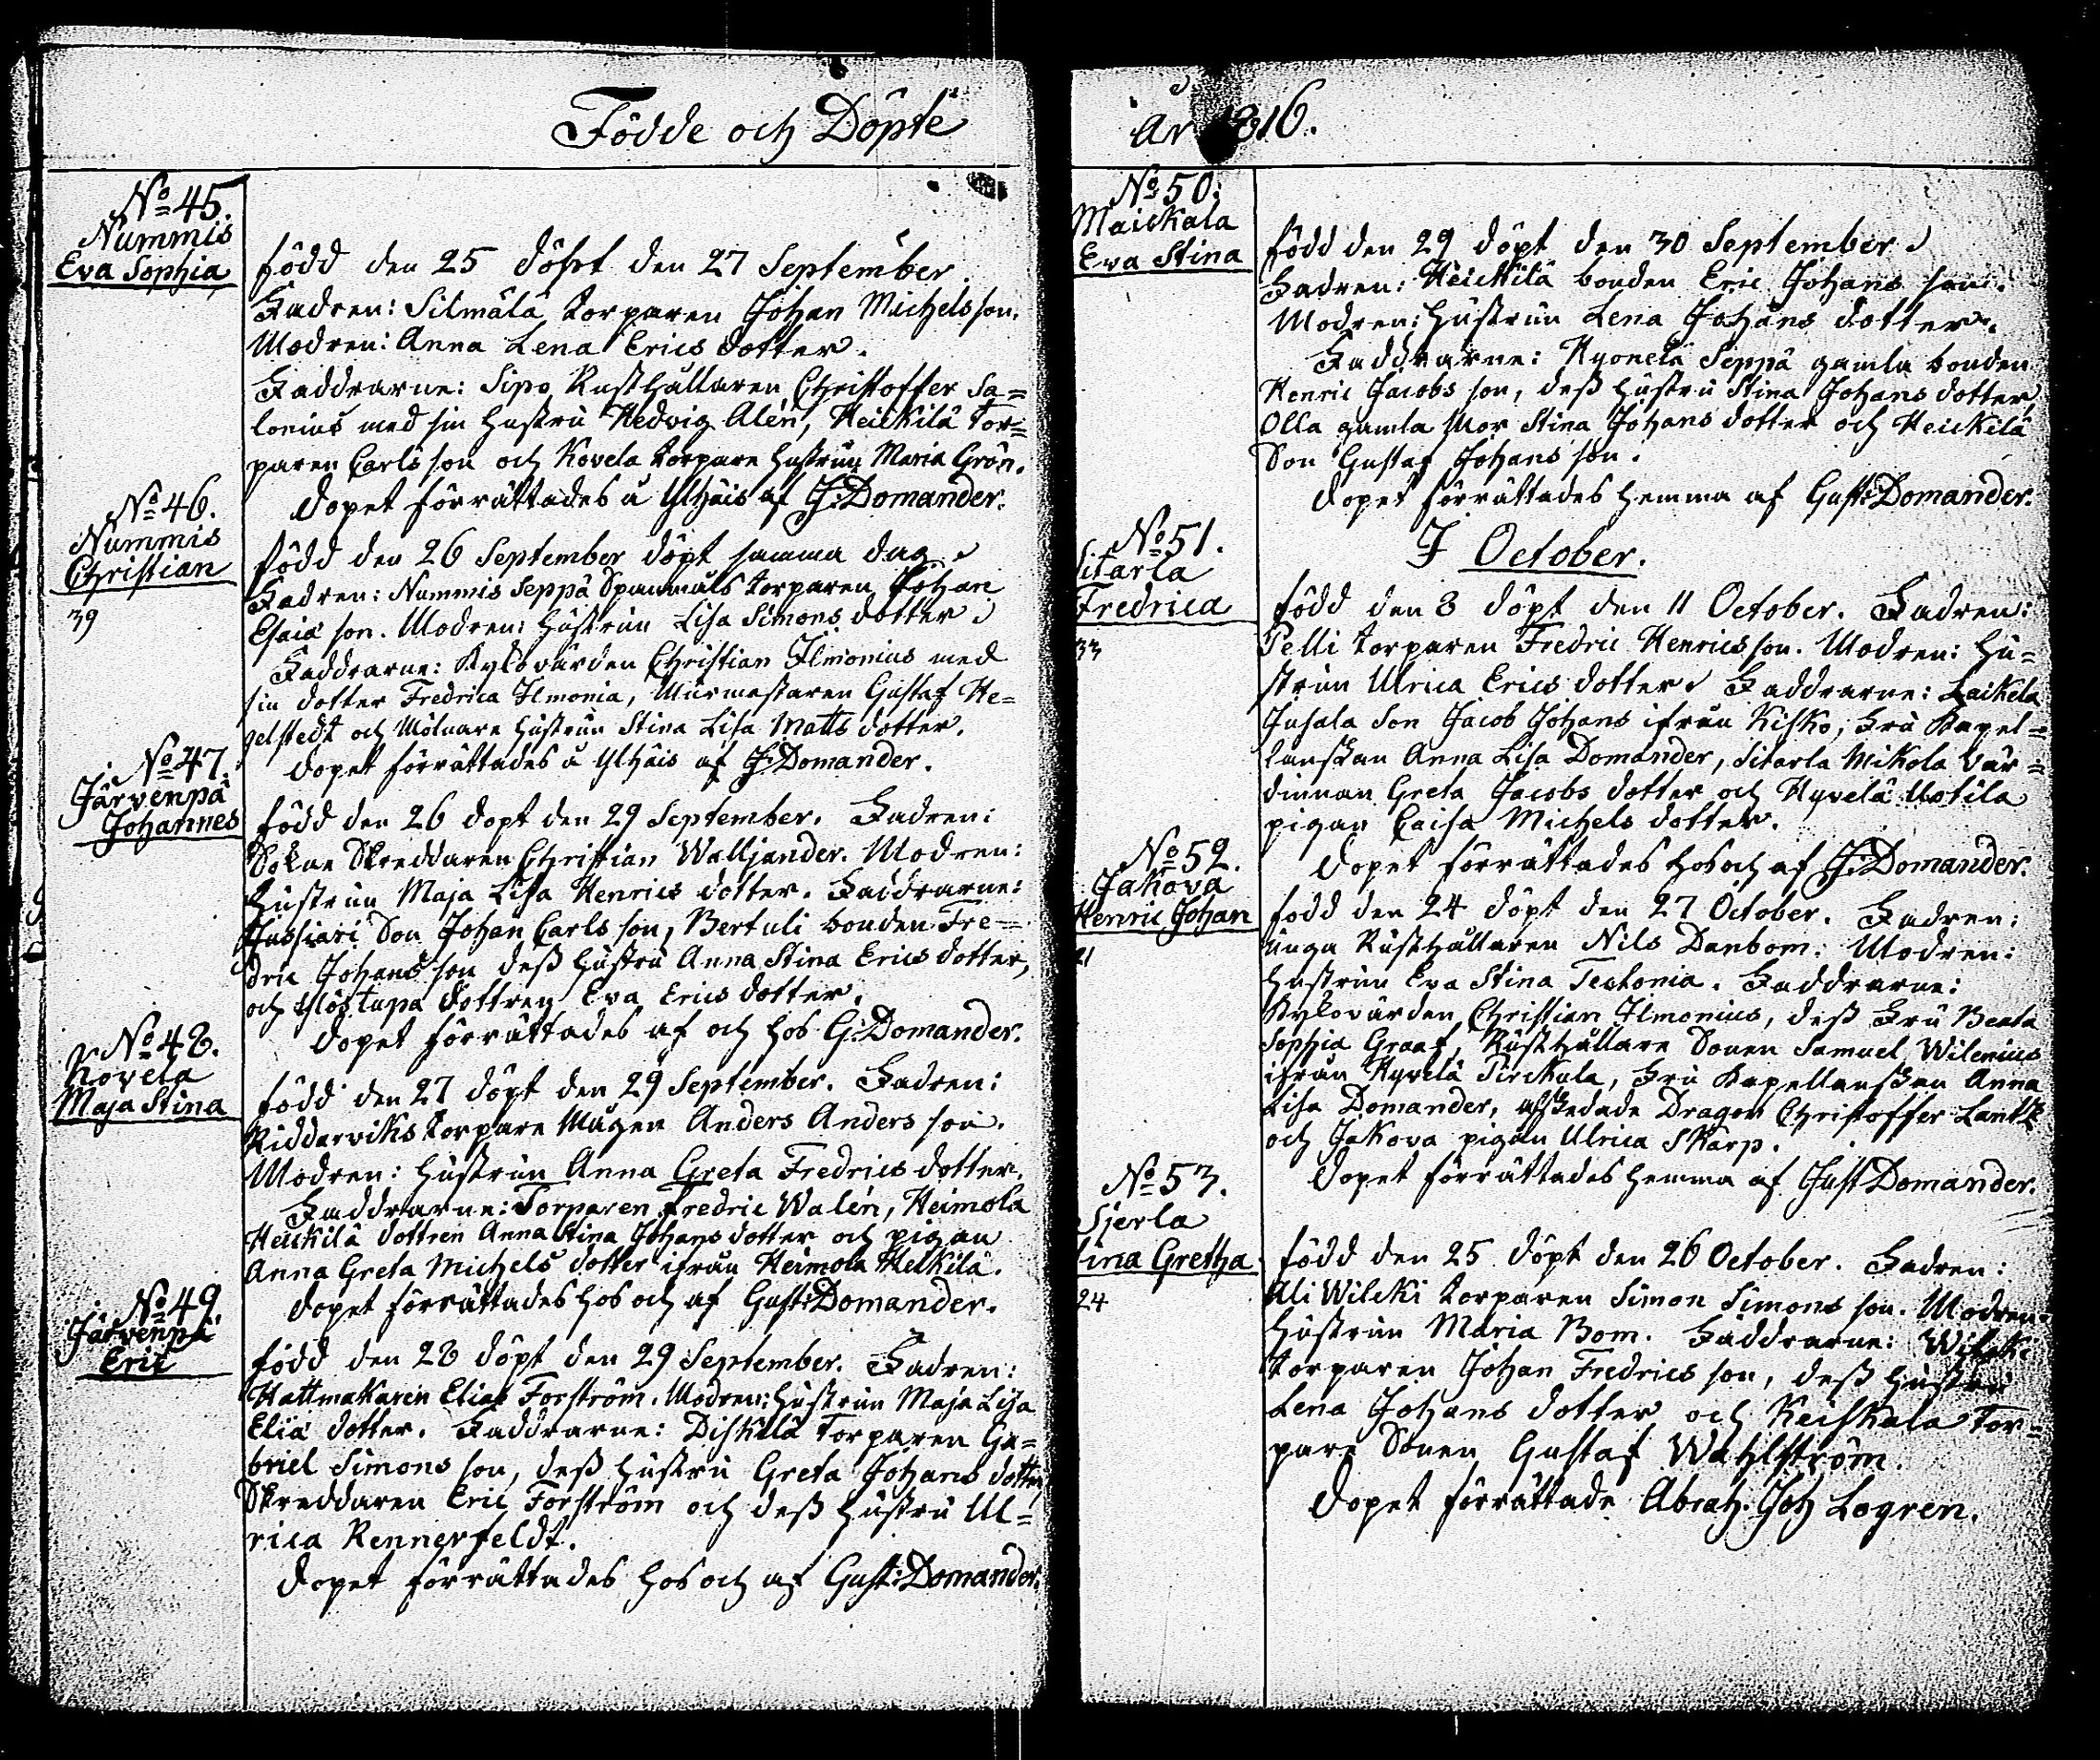 Födde och Döpte
No 45.
Nummis
Eva Sophia
född den 25 döpt den 27 September.
Fadren: Silmälä torparen Johan Michelsson.
Modren: Anna Lena Erics dotter.
Faddrarne: Sipo Rusthållaren Christoffer Sa=
lonius med sin hustru Hedvig Alén, Heickilä tor=
paren Carls son och Kovela torpare hustrun Maria Grön.
Dopet förrättades å Ylhäis af J. Domander.
No 46.
Nummis
Christian
39
född den 26 September döpt samma dag
Fadren: Nummis Seppä Spanmåls torparen Johan
Esaiæ son. Modren: hustrun Lisa Simons dotter
Faddrarne: Kyrkovärden Christian Ilmonius med
sin dotter Fredrica Ilmonia, Murmästaren Gustaf He=
gelstedt och Mölnare hustrun Stina Lisa Matts dotter.
Dopet förrättades å Ylhäis af J. Domander.
No 47.
Järvenpä
Johannes
född den 26 döpt den 29 September. Fadren:
Sokne Skreddaren Christian Walljander. Modren:
hustrun Maja Lisa Henrics dotter. Faddrarne:
Jussiari Son Johan Carls son, Bertuli bonden Fre=
dric Johans son dess hustru Anna Stina Erics dotter,
och Ylöstupa dottren Eva Erics dotter.
Dopet förrättades af och hos G. Domander.
No 48.
Kovela
Maja Stina
född den 27 döpt den 29 September. Fadren:
Riddarviks torpare Mågen Anders Anders son.
Modren: hustrun Anna Greta Fredrics dotter.
Faddrarne: Torparen Fredric Walén, Heimola
Heickilä dottren Anna Stina Johans dotter och pigan
Anna Greta Michels dotter ifrån Heimola Heikilä.
Dopet förrättades hos och af Gust: Domander.
No 49.
Järvenpä
Eric
född den 28 döpt den 29 September. Fadren:
Hattmakaren Elias Forström. Modren: hustrun Maja Lisa
Eliæ dotter. Faddrarne: Diskilä torparen Ga=
briel Simons son, dess hustru Greta Johans dotter,
Skreddaren Eric Forström och dess hustru Ul=
rica Rennerfeldt.
Dopet förrättades hos och af Gust: Domander.
År 1816.
No 50.
Maickala
Eva Stina
född den 29 döpt den 30 September
Fadren: Heickilä bonden Eric Johans son.
Modren: hustrun Lena Johans dotter.
Faddrarne: Hyonelä Seppä gamla bonden
Henric Jacobs son, dess hustru Stina Johans dotter,
Olla gamla Mor Stina Johans dotter och Heickilä
Son Gustaf Johans son.
Dopet förrättades hemma af Gust: Domander.
I October.
No 51.
Sitarla
Fredrica
33
född den 8 döpt den 11 October. Fadren:
Pelli torparen Fredric Henrics son. Modren: Hu=
strun Ulrica Erics dotter. Faddrarne: Laikela
Jusala Son Jacob Johans ifrån Kisko, Fru Kapel=
lanskan Anna Lisa Domander, Sitarla Mikola vär=
dinnan Greta Jacobs dotter och Hyvelä Uotila
pigan Caisa Michels dotter.
Dopet förrättades hos och af J. Domander.
No 52.
Jakova
Henric Johan
21
född den 24 döpt den 27 October. Fadren:
unga Rusthållaren Nils Danbom. Modren:
hustrun Eva Stina Tectonia. Faddrarne:
Kyrkovärden Christian Ilmonius, dess Fru Beata
Sophia Graaf, Rusthållare Sonen Samuel Wilenius
ifrån Hyvelä Sirckula, Fru Kapellanskan Anna
Lisa Domander, afskedade Dragon Christoffer Lantz
och Jakova pigan Ulrica Skarp.
Dopet förrättades hemma af Gust Domander.
No 53.
Sjerla
tina Gretha
24
född den 25 döpt den 26 October. Fadren:
Ali Wilcki torparen Simon Simons son. Modren:
hustrun Maria Bom. Faddrarne: Wilcki
torparen Johan Fredrics son, dess hustru
Lena Johans dotter och Keiskala tor=
pare Sonen Gustaf Wahlström.
Dopet förrättade Abrah: Joh Logren.